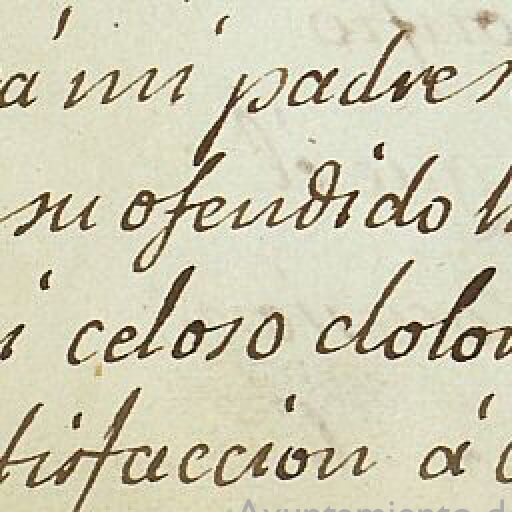 á mi padres
su ofendido h
i celoso dolor
tisfaccion á
Ayuntamiento de